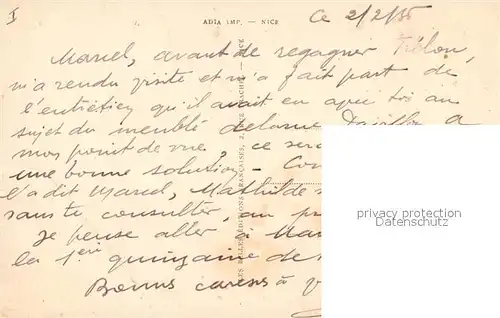 I
ADIA IMP. — NICE
Ce 2/2/35
Marcel, avant de regagner Trélon,
m'a rendu visite et m'a fait part de
l'entretien qu'il avait eu avec toi au
sujet du meublé a
mon point de vue, ce
une bonne solution -
l'a dit Marcel, Mathilde
sans te consulter, au
Je pense aller à
la 1ère quinzaine de
Bonnes caresses à
privacy protection
Datenschutz